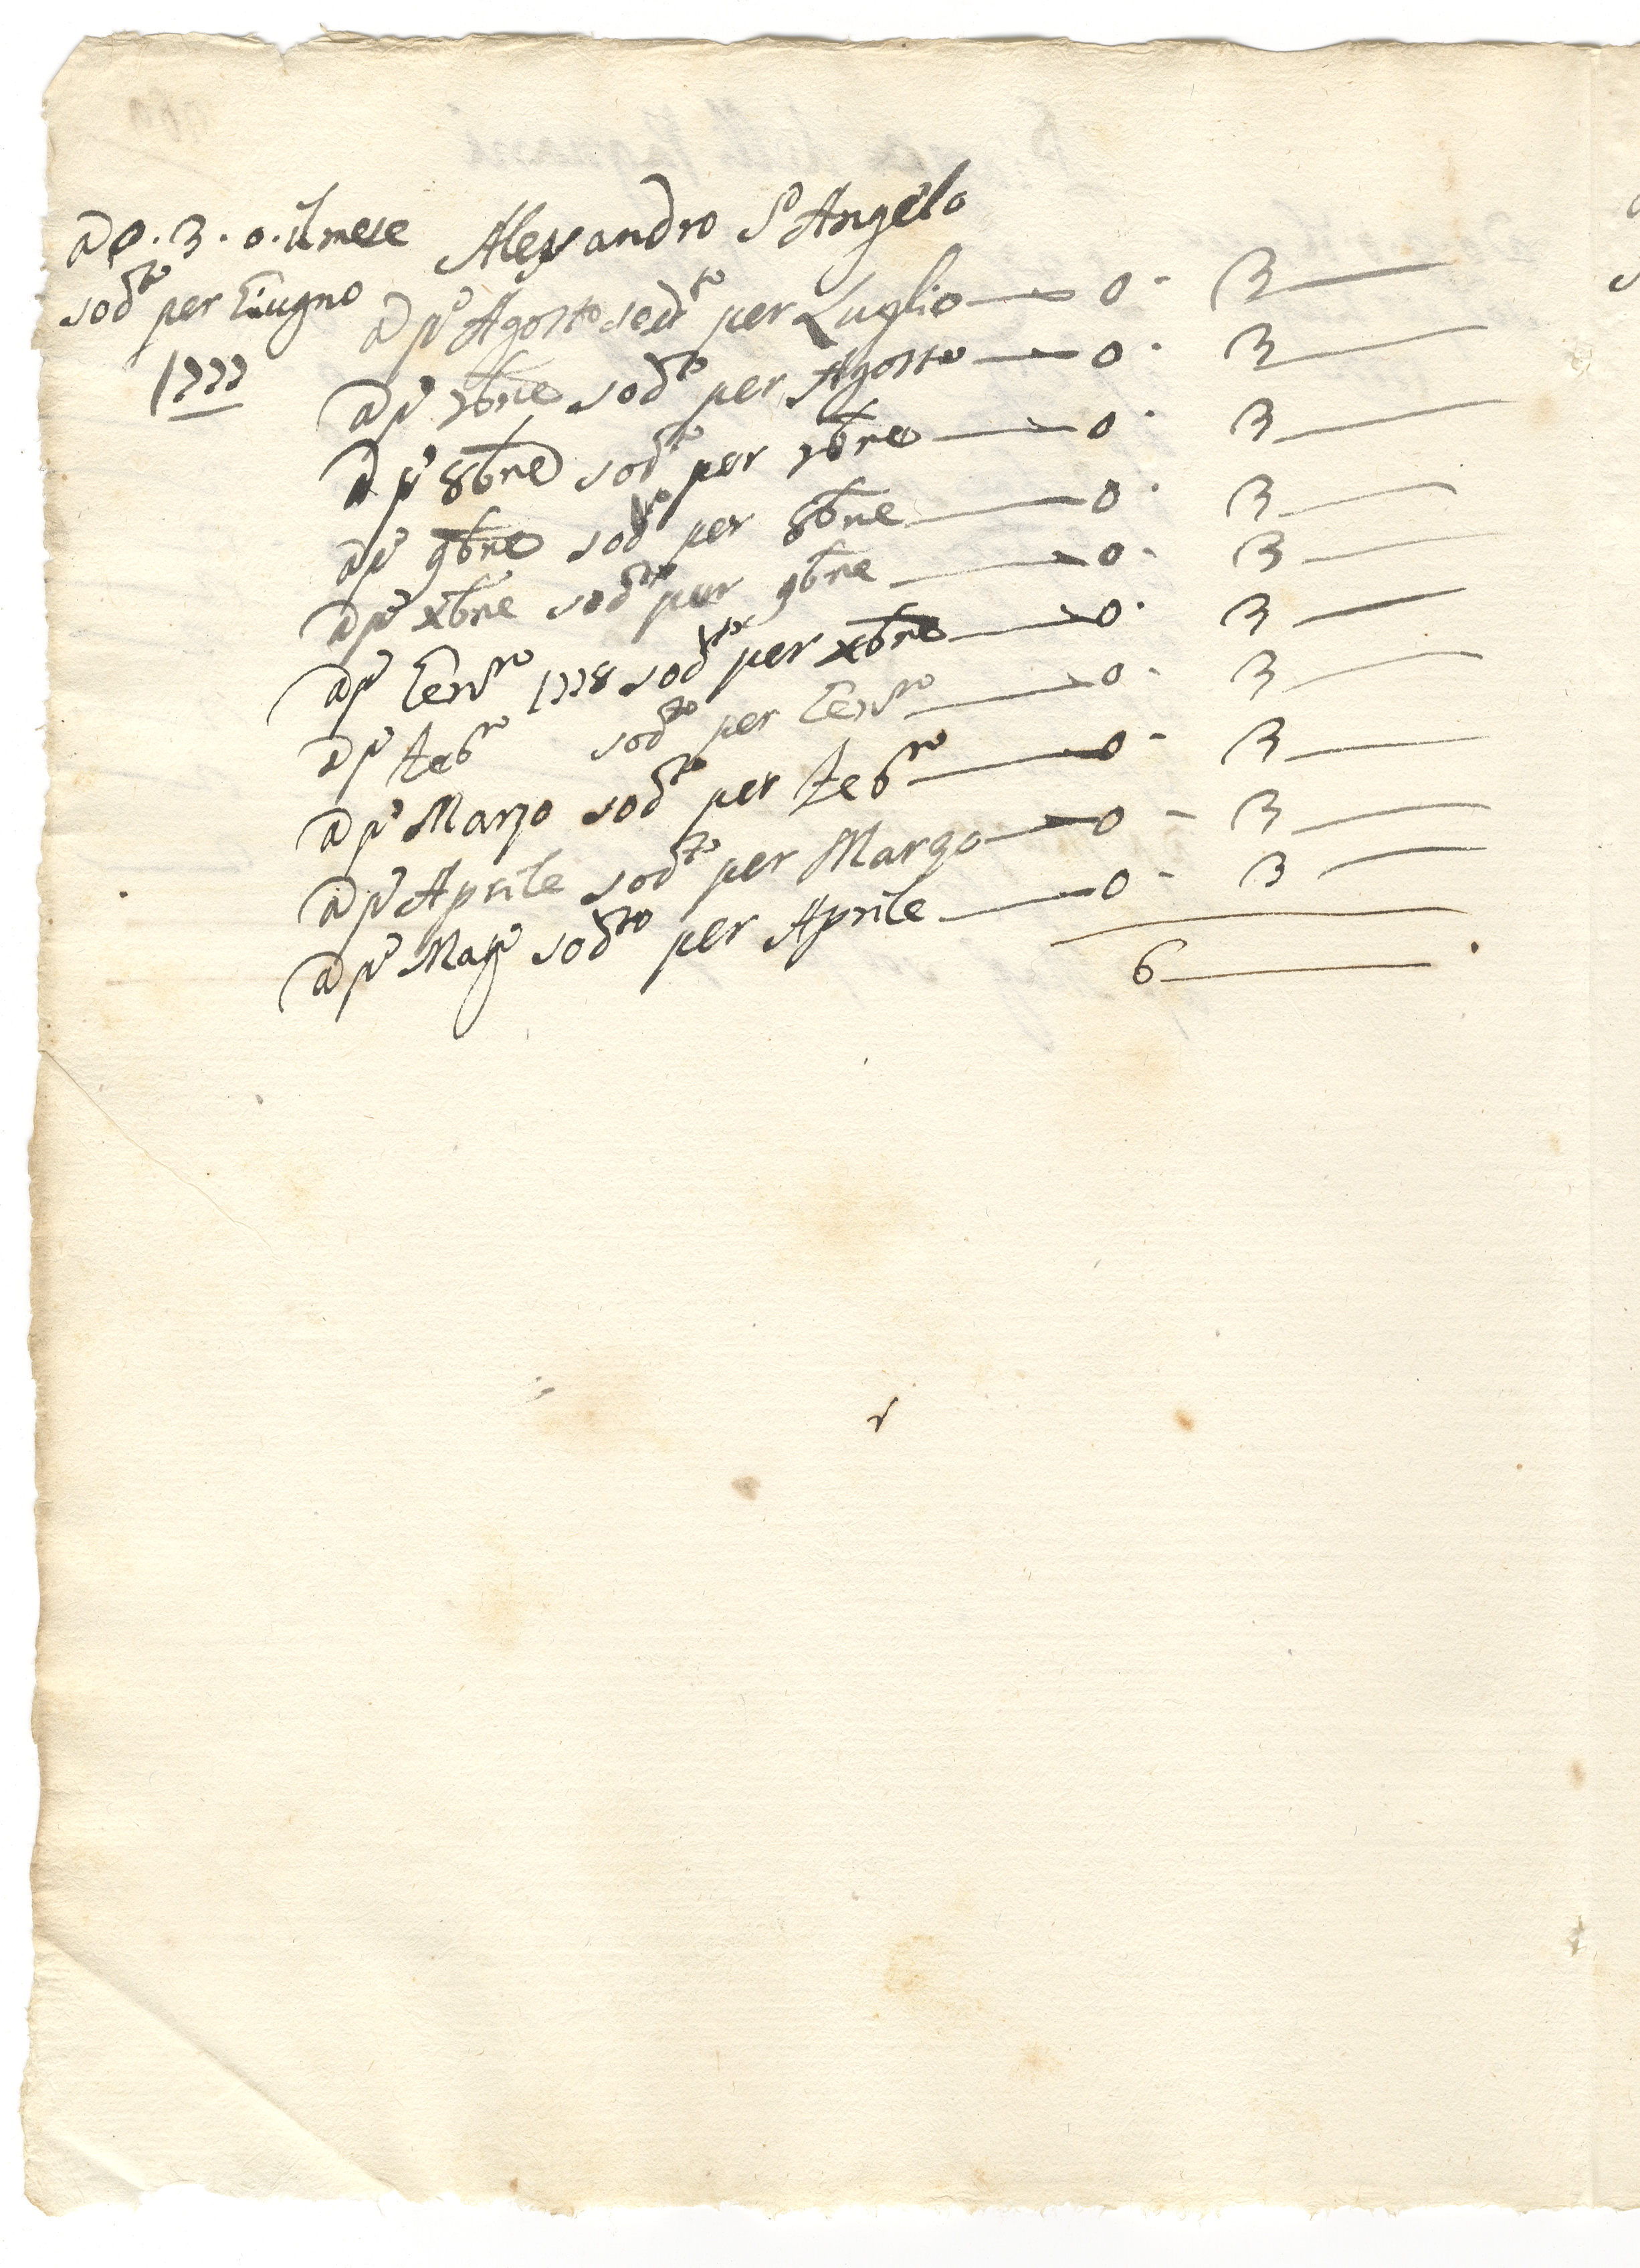 a D. 3. 0. il mese Alessandro S. Angelo
sodto per Giugno
1777
a po Agosto sodto per Luglio — 0 - 3 —
a po 7bre sodto per Agosto — 0 · 3 —
a po 8bre sodto per 7bre — 0 · 3 —
a po 9bre sodto per 8bre — 0 · 3 —
a po xbre sodto per 9bre — 0 - 3 —
a po Genro 1778 sodto per xbre — 0 · 3 —
a po febro sodto per Genro — 0 - 3 —
a po Marzo sodto per febro — 0 - 3 —
a po Aprile sodto per Marzo — 0 - 3 —
a po Mago sodto per Aprile — 0 - 3 —
6 —